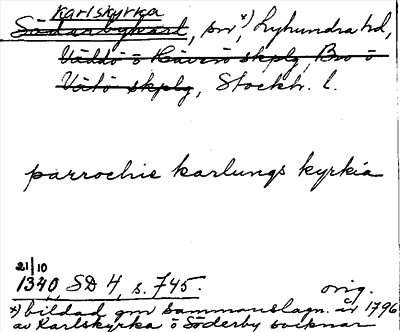 Karlskyrka
Söderbykarl, sn *) Lyhundra hd,
Väddö o Häverö skplg, Bro o
Vätö skplg, Stockh. l.
parrochie karlungs kyrkia
21/10
1340, SD 4, s. 745. orig.
*) bildad gm sammanslagn. år 1796
av Karlskyrka o Söderby socknar